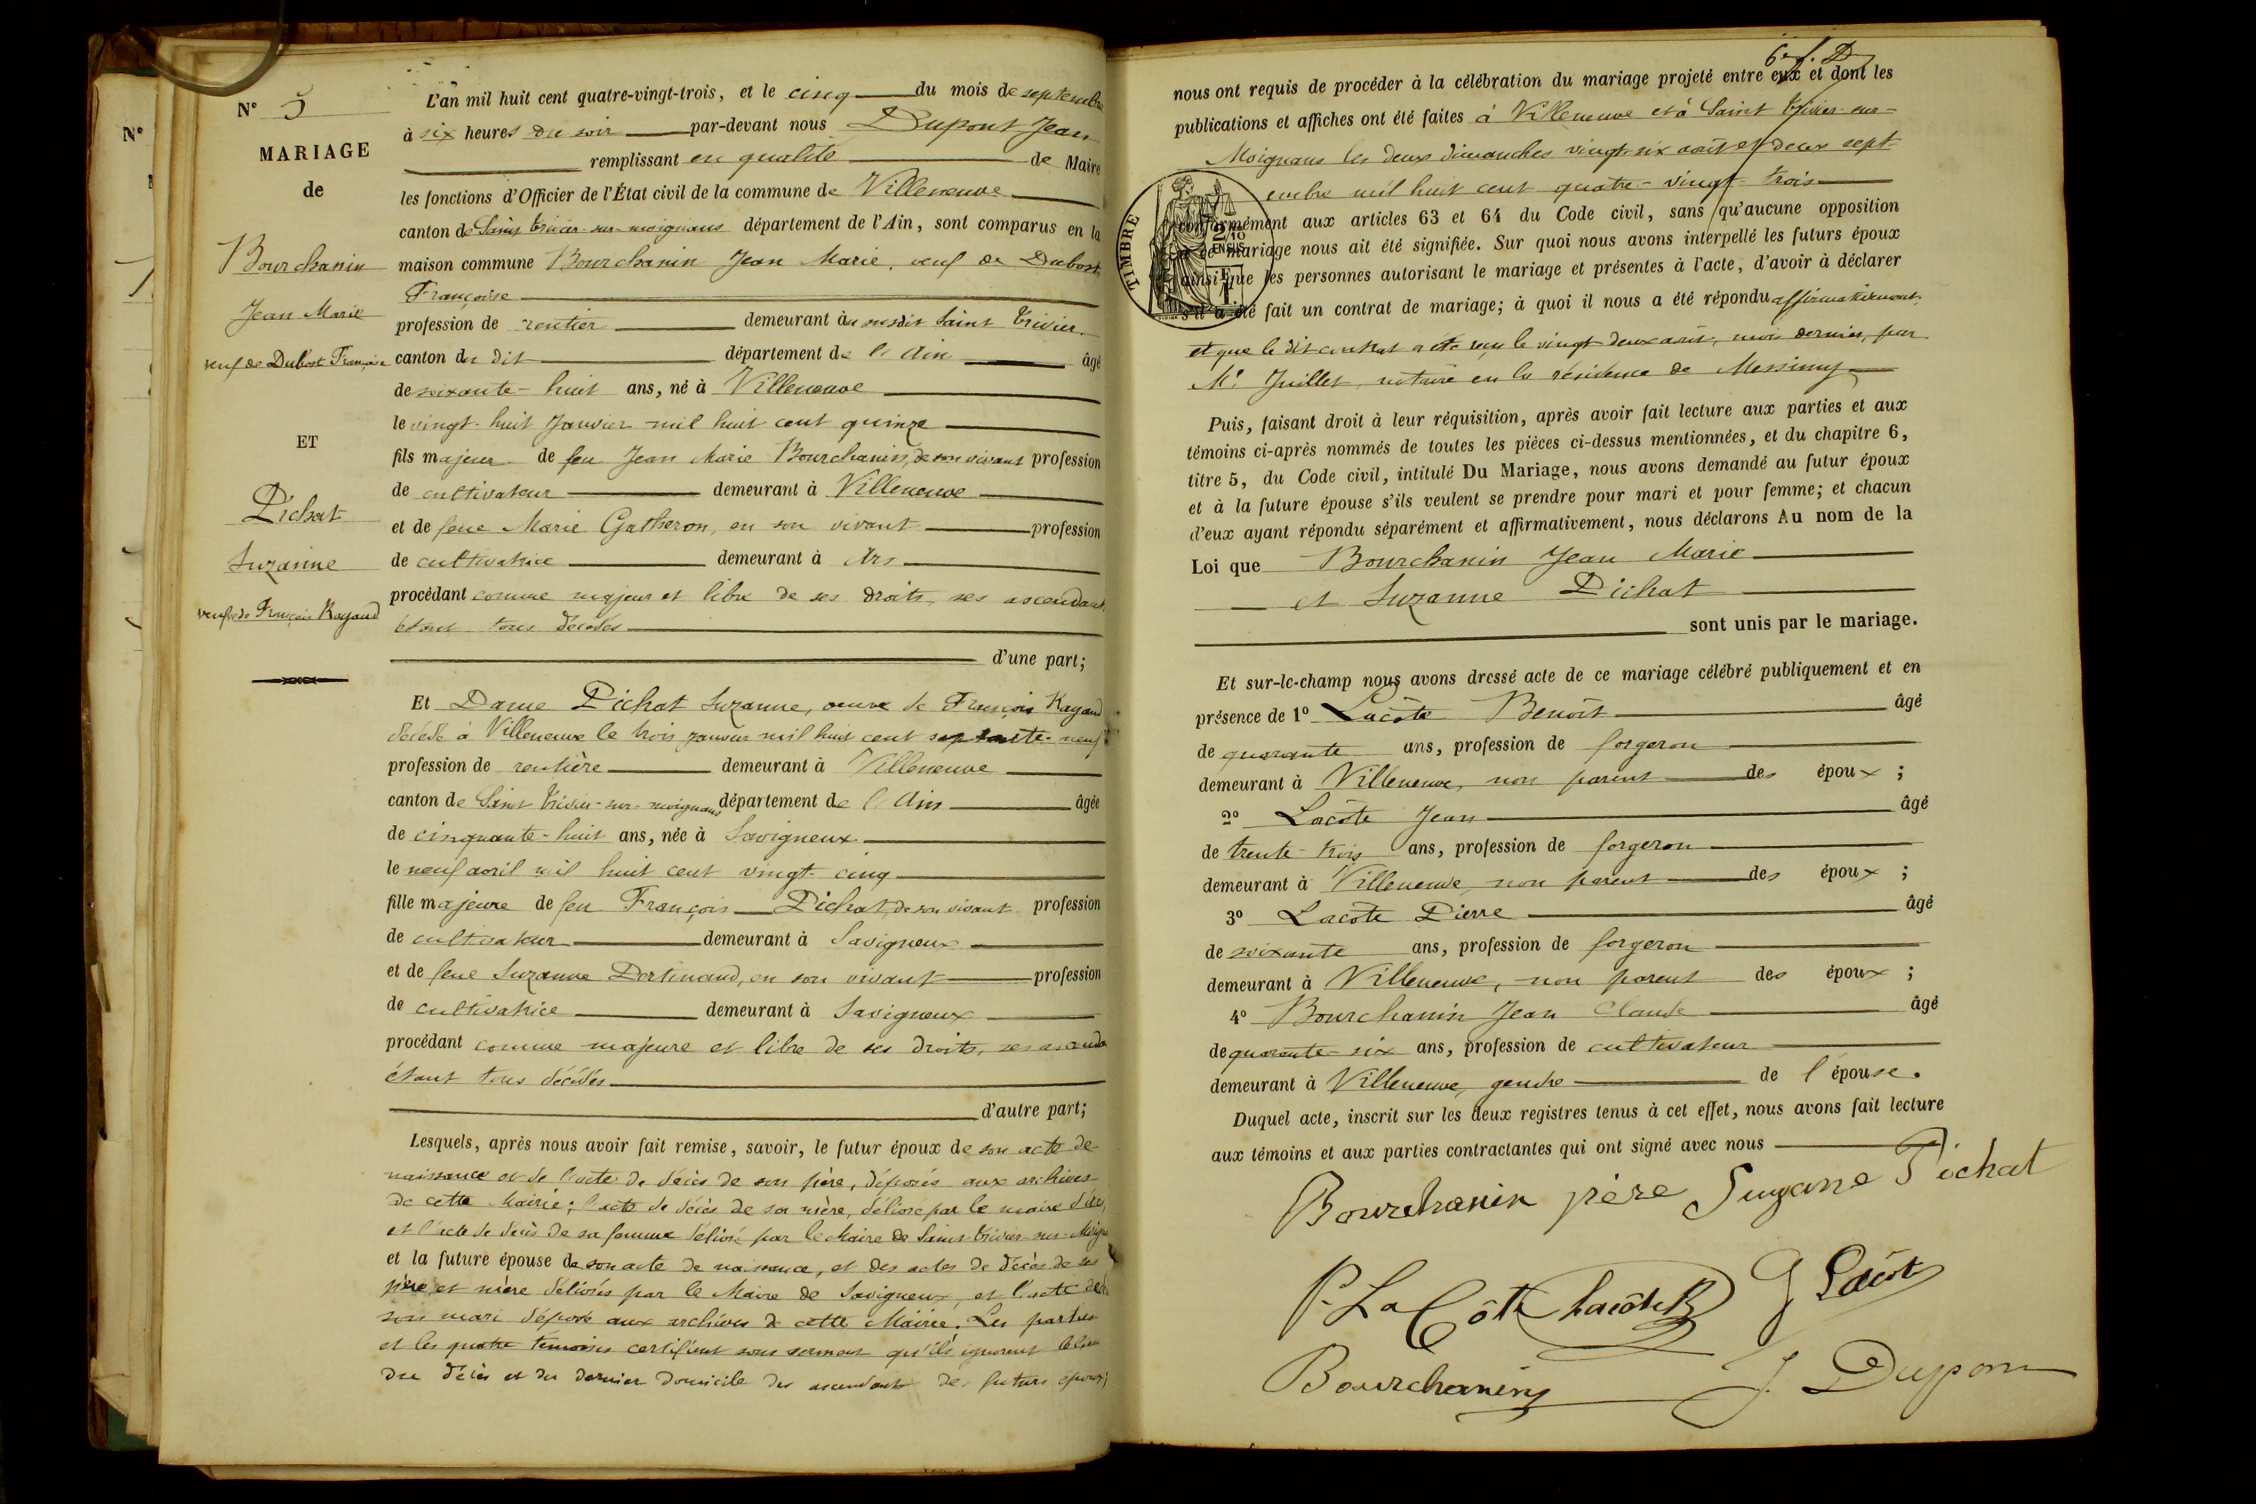 N°
N° 5
MARIAGE
de
Bourchanin
Jean Marie
veuf de Dubost Françoise
ET
Pichat
Suzanne
veuve de François Rayaud
L'an mil huit cent quatre-vingt-trois, et le cinq du mois de septembre
à six heures du soir par-devant nous Dupont Jean
remplissant en qualité de Maire
les fonctions d'Officier de l'État civil de la commune de Villeneuve
canton de Saint Trivier-sur-moignans département de l'Ain, sont comparus en la
maison commune Bourchanin Jean Marie, veuf de Dubost
Françoise
profession de rentier demeurant à susdit Saint Trivier
canton du dit département de l'Ain âgé
de soixante-huit ans, né à Villeneuve
le vingt-huit Janvier mil huit cent quinze
fils majeur de feu Jean Marie Bourchanin, de son vivant profession
de cultivateur demeurant à Villeneuve
et de feue Marie Gatheron, en son vivant profession
de cultivatrice demeurant à Ars
procédant comme majeur et libre de ses droits, ses ascendants
étant tous décédés
d'une part;
Et Dame Pichat Suzanne, veuve de François Rayaud
décédé à Villeneuve le trois janvier mil huit cent septante-neuf
profession de rentière demeurant à Villeneuve
canton de Saint Trivier-sur-moignans département de l'Ain âgée
de cinquante-huit ans, née à Savigneux
le neuf avril mil huit cent vingt-cinq
fille majeure de feu François Pichat, de son vivant profession
de cultivateur demeurant à Savigneux
et de feue Suzanne Dertinaud, en son vivant profession
de cultivatrice demeurant à Savigneux
procédant comme majeure et libre de ses droits, ses ascendants
étant tous décédés
d'autre part;
Lesquels, après nous avoir fait remise, savoir, le futur époux de son acte de
naissance et de l'acte de décès de son père, déposés aux archives
de cette Mairie; l'acte de décès de sa mère, délivré par le maire d'Ars,
et l'acte de décès de sa femme délivré par le Maire de Saint-Trivier-sur-Moignans
et la future épouse de son acte de naissance, et des actes de décès de ses
père et mère délivrés par le Maire de Savigneux, et l'acte de décès
son mari déposé aux archives de cette Mairie. Les parties
et les quatre témoins certifient sous serment qu'ils ignorent le lieu
du décès et du dernier domicile des ascendants des futurs époux;
nous ont requis de procéder à la célébration du mariage projeté entre eux et dont les
publications et affiches ont été faites à Villeneuve et à Saint Trivier-sur-
Moignans les deux dimanches vingt-six août et deux sept-
embre mil huit cent quatre-vingt-trois
TIMBRE
conformément aux articles 63 et 64 du Code civil, sans qu'aucune opposition
à ce mariage nous ait été signifiée. Sur quoi nous avons interpellé les futurs époux
ainsi que les personnes autorisant le mariage et présentes à l'acte, d'avoir à déclarer
s'il a été fait un contrat de mariage; à quoi il nous a été répondu affirmativement
et que le dit contrat a été reçu le vingt-deux août, mois dernier, par
Me Juillet, notaire en la résidence de Messimy
Puis, faisant droit à leur réquisition, après avoir fait lecture aux parties et aux
témoins ci-après nommés de toutes les pièces ci-dessus mentionnées, et du chapitre 6,
titre 5, du Code civil, intitulé Du Mariage, nous avons demandé au futur époux
et à la future épouse s'ils veulent se prendre pour mari et pour femme; et chacun
d'eux ayant répondu séparément et affirmativement, nous déclarons Au nom de la
Loi que Bourchanin Jean Marie
et Suzanne Pichat
sont unis par le mariage.
Et sur-le-champ nous avons dressé acte de ce mariage célébré publiquement et en
présence de 1° Lacôte Benoît âgé
de quarante ans, profession de forgeron
demeurant à Villeneuve, non parent des époux ;
2° Lacôte Jean âgé
de trente-trois ans, profession de forgeron
demeurant à Villeneuve, non parent des époux ;
3° Lacôte Pierre âgé
de soixante ans, profession de forgeron
demeurant à Villeneuve, non parent des époux ;
4° Bourchanin Jean Claude âgé
de quarante-six ans, profession de cultivateur
demeurant à Villeneuve, gendre de l'épouse.
Duquel acte, inscrit sur les deux registres tenus à cet effet, nous avons fait lecture
aux témoins et aux parties contractantes qui ont signé avec nous
Bourchanin père Suzanne Pichat
P. La Côte Lacôte B J Lacôte
Bourchanin J. Dupont